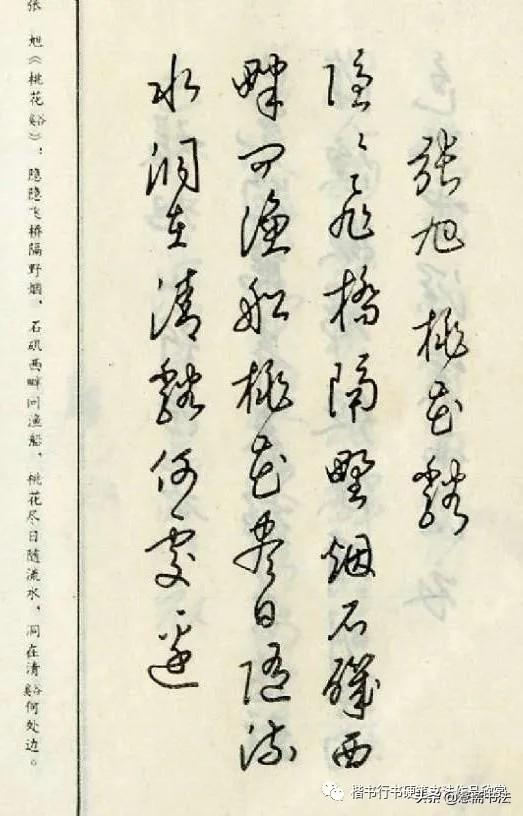 張旭 桃花谿
隱隱飛橋隔野烟石磯西
畔问渔船桃花尽日随流
水洞在清谿何处邊
张旭《桃花谿》：隐隐飞桥隔野烟，石矶西畔问渔船，桃花尽日随流水，洞在清谿何处边。
楷书行书硬笔书法作品欣赏